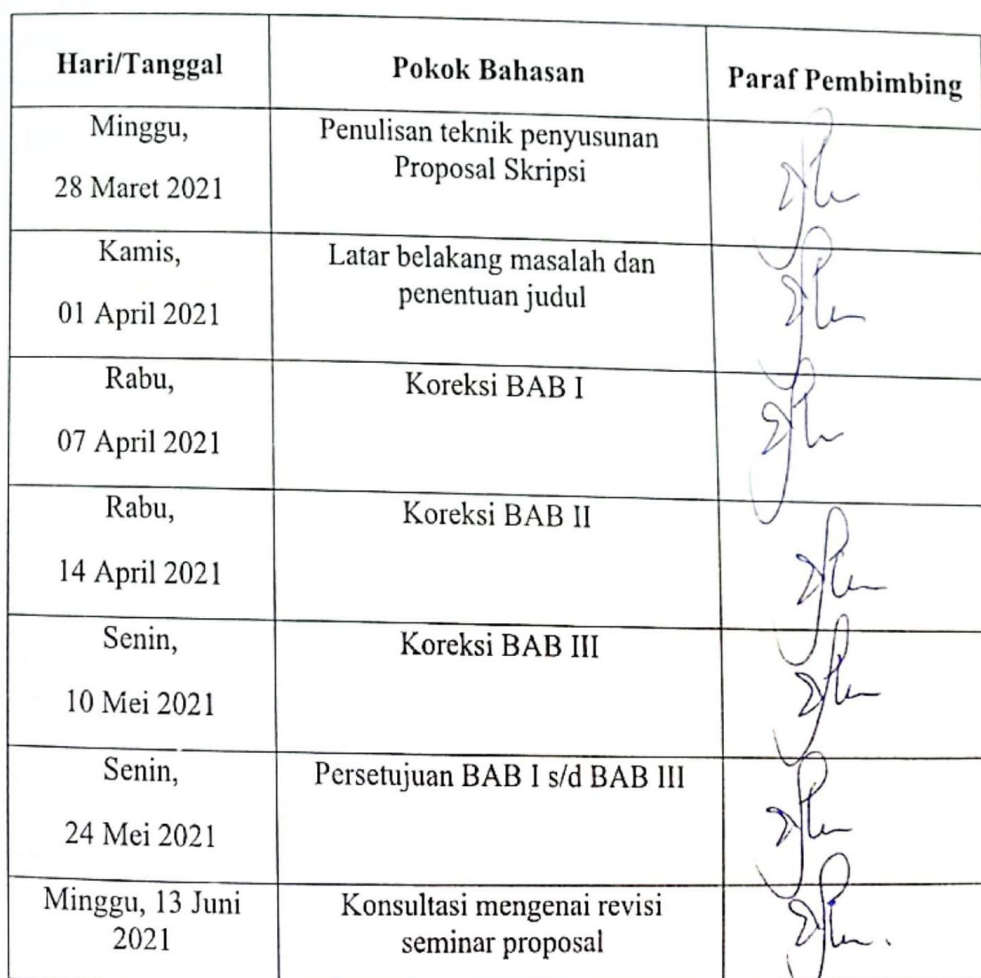 Hari/Tanggal
Pokok Bahasan
Paraf Pembimbing
Minggu,
28 Maret 2021
Penulisan teknik penyusunan
Proposal Skripsi
Kamis,
01 April 2021
Latar belakang masalah dan
penentuan judul
Rabu,
07 April 2021
Koreksi BAB I
Rabu,
14 April 2021
Koreksi BAB II
Senin,
10 Mei 2021
Koreksi BAB III
Senin,
24 Mei 2021
Persetujuan BAB I s/d BAB III
Minggu, 13 Juni
2021
Konsultasi mengenai revisi
seminar proposal